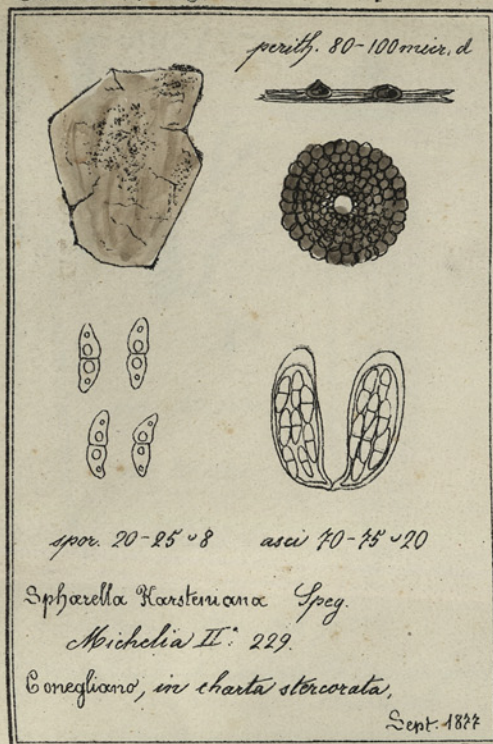 perith. 80-100 micr. d
spor. 20-25 ᴗ 8
asci 70-75 ᴗ 20
Sphærella Karsteniana Speg.
Michelia II. 229.
Conegliano, in charta stercorata,
Sept. 1877